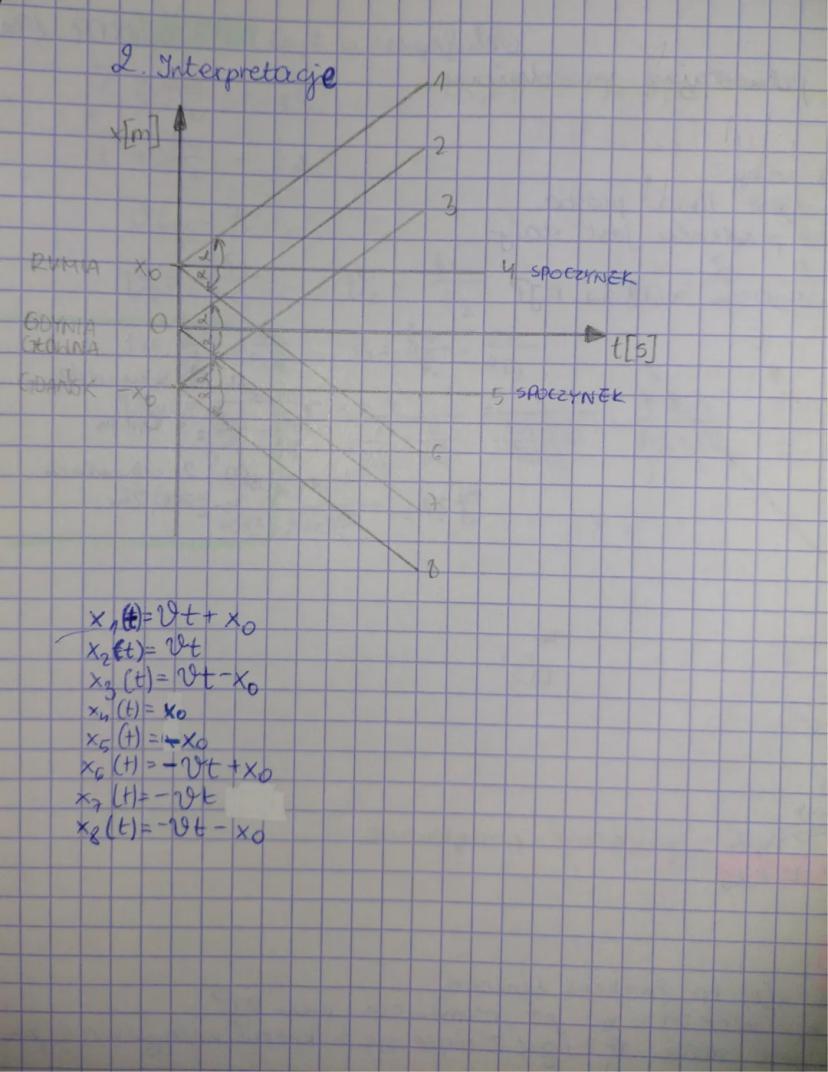 2. Interpretacje
x[m]
1
2
3
RUMIA x₀
4 SPOCZYNEK
GDYNIA 0
GŁÓWNA
t[s]
GDAŃSK -x₀
5 SPOCZYNEK
6
7
8
x₁(t)=vt+x₀
x₂(t)=vt
x₃(t)=vt-x₀
x₄(t)=x₀
x₅(t)=-x₀
x₆(t)=-vt+x₀
x₇(t)=-vt
x₈(t)=-vt-x₀